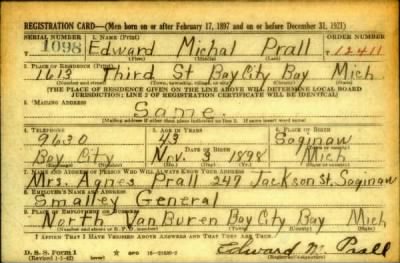 REGISTRATION CARD—(Men born on or after February 17, 1897 and on or before December 31, 1921)
SERIAL NUMBER 1. NAME (Print) ORDER NUMBER
1098 Edward Michal Prall 12411
(First) (Middle) (Last)
2. PLACE OF RESIDENCE (Print)
1613 Third St Bay City Bay Mich
(Number and street) (Town, township, village, or city) (County) (State)
[THE PLACE OF RESIDENCE GIVEN ON THE LINE ABOVE WILL DETERMINE LOCAL BOARD
JURISDICTION; LINE 2 OF REGISTRATION CERTIFICATE WILL BE IDENTICAL]
3. MAILING ADDRESS
Same
(Mailing address if other than place indicated on line 2. If same insert word same)
4. TELEPHONE 5. AGE IN YEARS 6. PLACE OF BIRTH
9630 43 Saginaw
DATE OF BIRTH
Bay City Nov. 3 1898 Mich
7. NAME AND ADDRESS OF PERSON WHO WILL ALWAYS KNOW YOUR ADDRESS
Mrs. Agnes Prall 249 Jackson St. Saginaw
8. EMPLOYER'S NAME AND ADDRESS
Smalley General
9. PLACE OF EMPLOYMENT OR BUSINESS
North Van Buren Bay City Bay Mich
(Number and street or R. F. D. number) (Town) (County) (State)
I AFFIRM THAT I HAVE VERIFIED ABOVE ANSWERS AND THAT THEY ARE TRUE.
D. S. S. Form 1
(Revised 1-1-42) (over)
Edward M. Prall
(Registrant's signature)